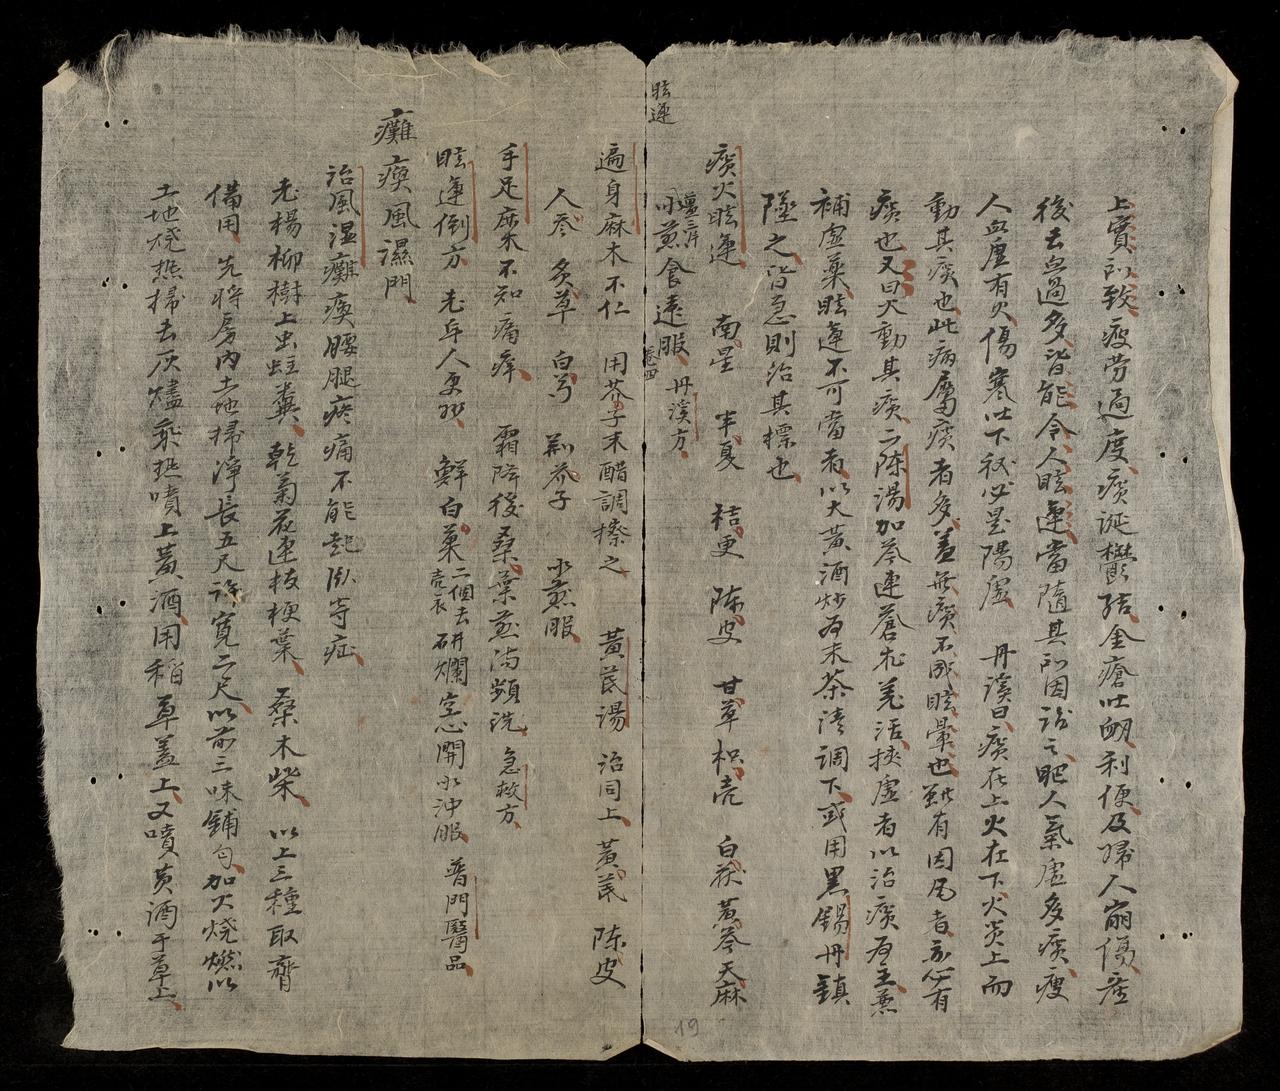 上實所致疲勞過度痰涎鬱結金瘡吐衂利便及婦人崩傷產
後去血過多皆能令人眩運當隨其所因治之肥人氣虛多痰瘦
人血虛有火傷寒吐下後必是陽虛 丹溪曰痰在上火在下火炎上而
動其痰也此病屬痰者多盖無痰不成眩暈也雖有因風者亦必有
痰也又曰火動其痰二陳湯加芩連蒼朮羗活挾虛者以治痰為主兼
補虛藥眩運不可當者以大黃酒炒為末茶清調下或用黑錫丹鎮
墜之皆急則治其標也
痰火眩運 南星 半夏 桔更 陳皮 甘草 枳壳 白茯 黃芩 天麻
薑三片
水煎食遠服 丹溪方
眩運
卷四
遍身麻木不仁 用芥子末醋調搽之 黃芪湯 治同上 黃芪 陳皮
人参 炙草 白芍 荊芥子 水煎服
手足麻木不知痛痒 霜降後桑葉煎湯頻洗 急救方
眩運倒方 老年人更妙 鮮白菓二個去壳衣研爛空心開水沖服 普門醫品
癱瘓風濕門
治風湿癱瘓腰腿疼痛不能起卧等症
老楊柳樹上虫蛀糞 乾菊花連枝梗葉 桑木柴 以上三種取齊
備用 先將房內土地掃淨長五尺許寬二尺以前三味鋪勻加火燒燃以
土地燒热掃去灰燼乘热噴上黃酒用稻草盖上又噴黃酒于草上
19